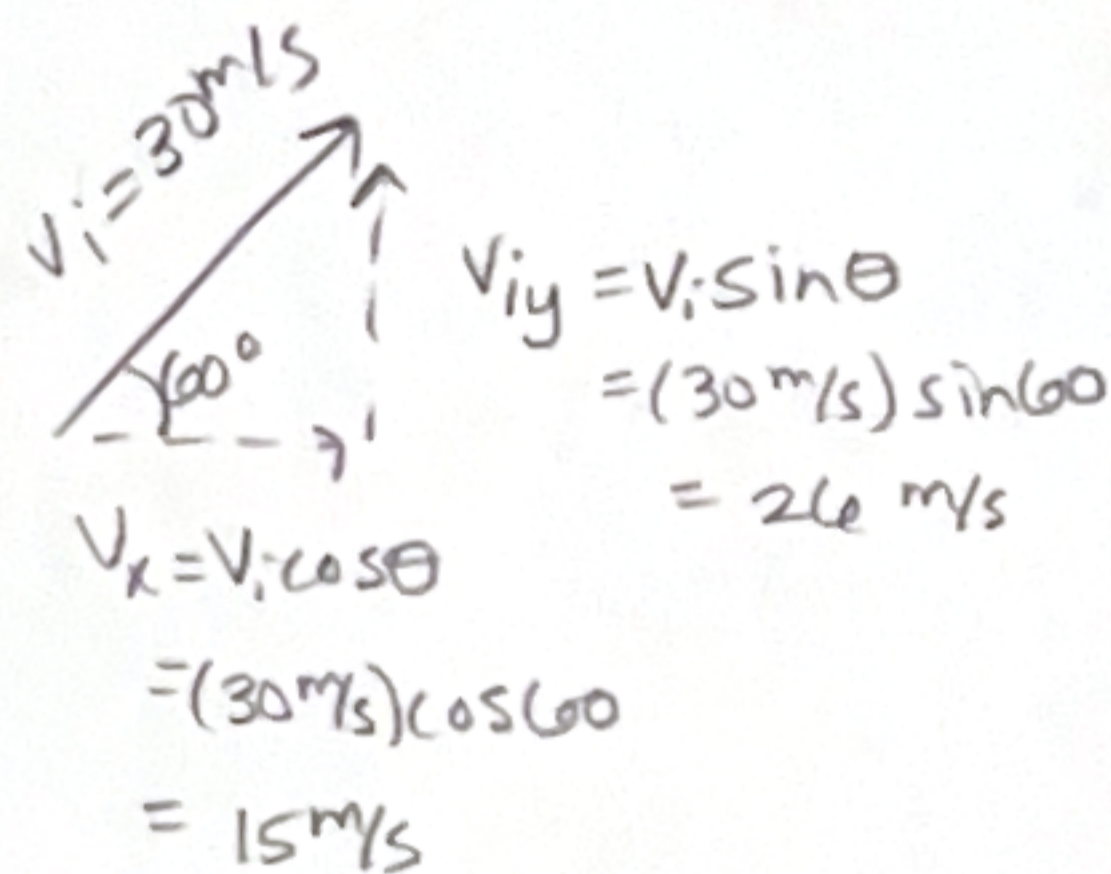 Vi = 30 m/s
60°
Viy = Vi sinθ
= (30 m/s) sin60
= 26 m/s
Vx = Vi cosθ
= (30 m/s) cos60
= 15 m/s